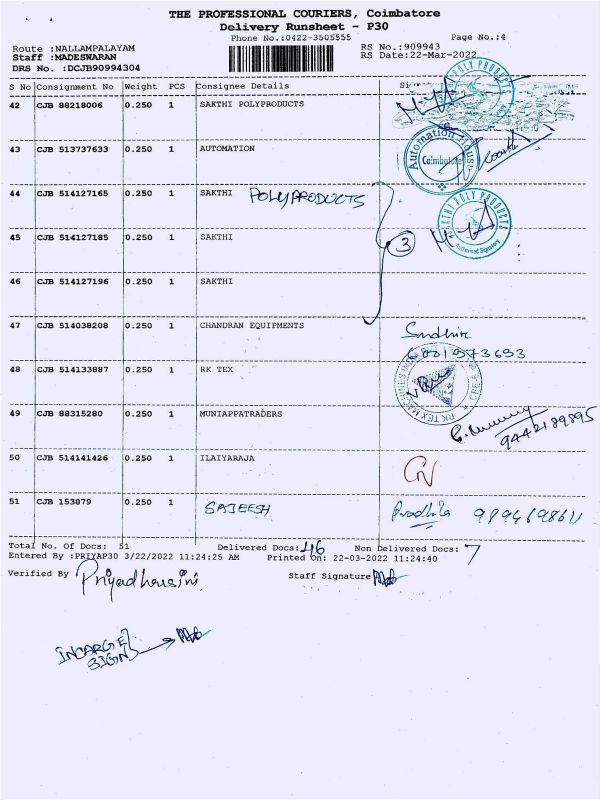 THE PROFESSIONAL COURIERS, Coimbatore
Delivery Runsheet - P30
Phone No.:0422-3505555 Page No.:4
Route :NALLAMPALAYAM RS No.:909943
Staff :MADESWARAN RS Date:22-Mar-2022
DRS No. :DCJB90994304
S No Consignment No Weight PCS Consignee Details
42 CJB 88218006 0.250 1 SAKTHI POLYPRODUCTS
POLY PRODUCTS
43 CJB 513737633 0.250 1 AUTOMATION
Automation House
Coimbatore
44 CJB 514127165 0.250 1 SAKTHI POLYPRODUCTS
SAKTHI POLY PRODUCTS
45 CJB 514127185 0.250 1 SAKTHI 3
Authorised Signatory
46 CJB 514127196 0.250 1 SAKTHI
47 CJB 514038208 0.250 1 CHANDRAN EQUIPMENTS
48 CJB 514133887 0.250 1 RK TEX
RK TEX MACHINES
49 CJB 88315280 0.250 1 MUNIAPPATRADERS
9442189895
50 CJB 514141426 0.250 1 ILAIYARAJA
51 CJB 153879 0.250 1 SAJEESH
Total No. Of Docs: 51 Delivered Docs: 46 Non Delivered Docs: 7
Entered By :PRIYAP30 3/22/2022 11:24:25 AM Printed On: 22-03-2022 11:24:40
Verified By Priyadharsini Staff Signature
INCARGE
SIGN